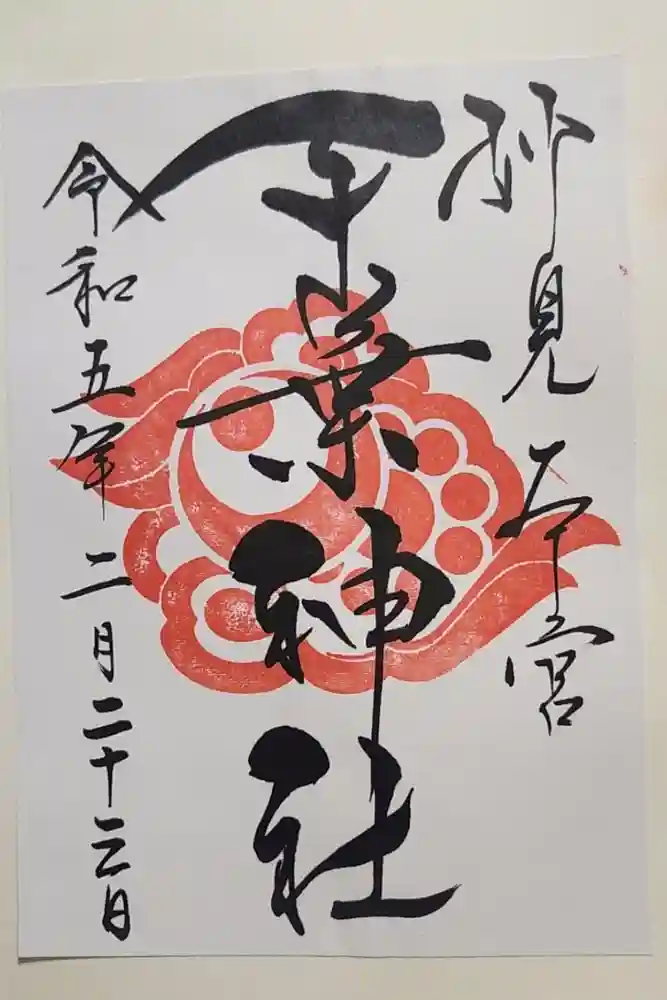 妙見本宮
千葉神社
令和五年二月二十三日